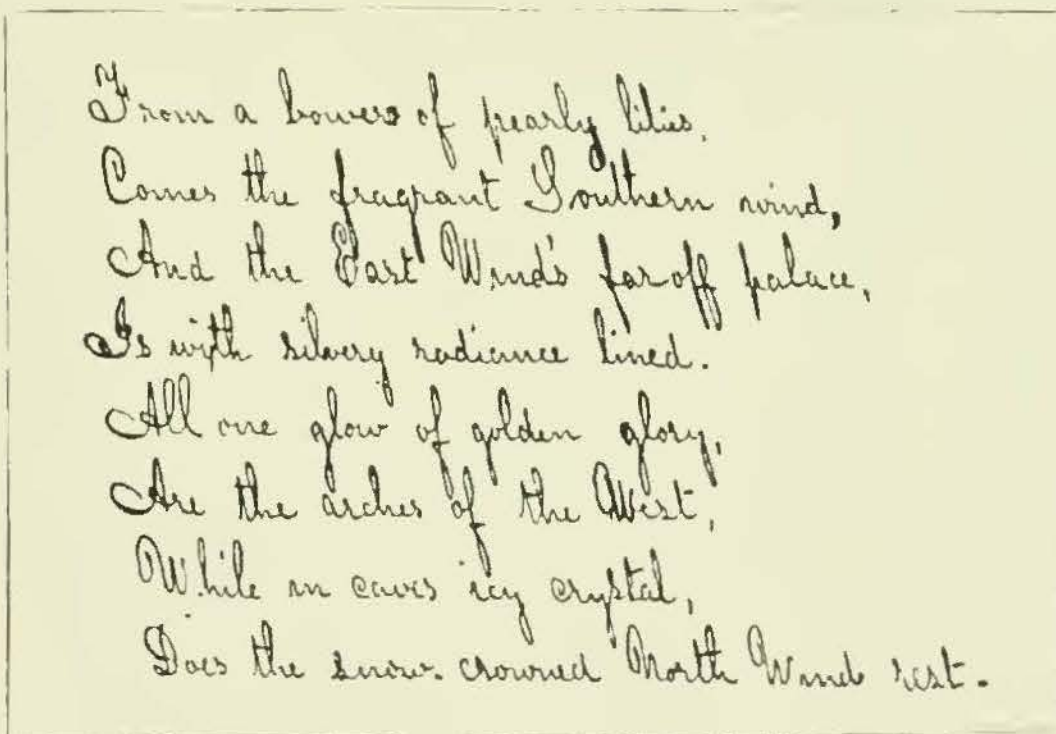 From a bower of pearly lilies,
Comes the fragrant Southern wind,
And the East Wind's far off palace,
Is with silvery radiance lined.
All one glow of golden glory,
Are the arches of the West,
While in caves icy crystal,
Does the snow-crowned North Wind rest.